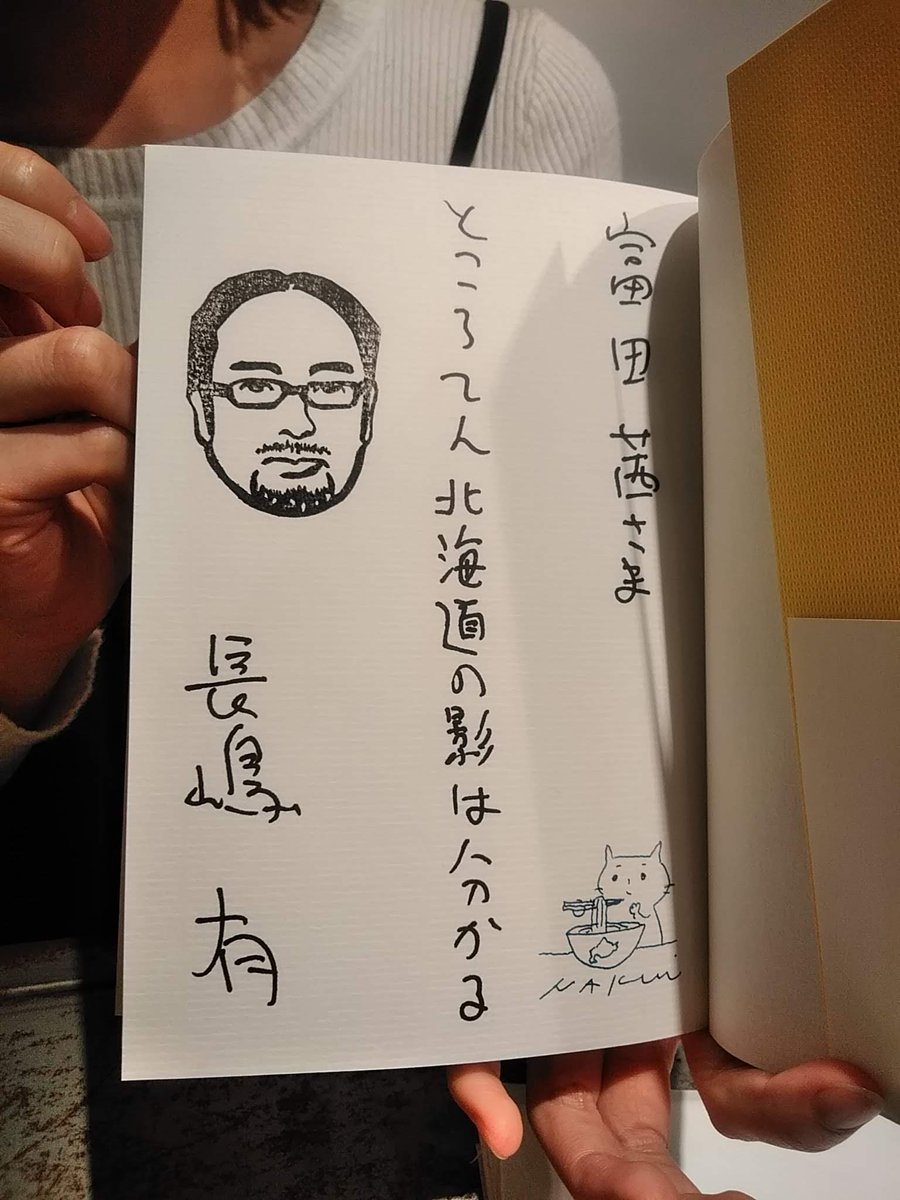 富田茜さま
ところてん北海道の影は分かる
長嶋有